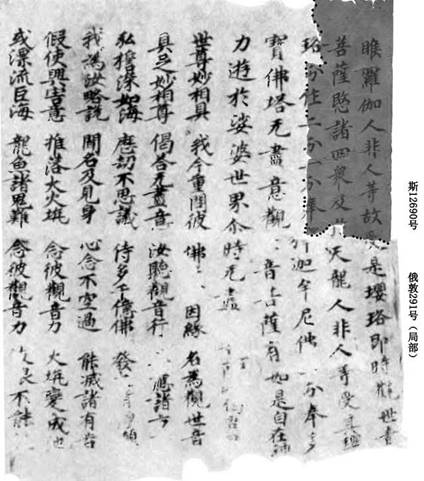 睺羅伽人非人等故受是瓔珞即時觀世音
菩薩愍諸四眾及於天龍人非人等受其瓔
珞分作二分一分奉釋迦牟尼佛 分奉多
寶佛塔无盡意觀 音菩薩有如是自在神
力遊於娑婆世界尒時无盡
世尊妙相具 我今重問彼 佛 因緣 名為觀世音
具足妙相尊 偈答无盡意 汝聽觀音行 應諸方
弘誓深如海 歷劫不思議 侍多千億佛 發 淨願
我為汝略說 聞名及見身 心念不空過 能滅諸有苦
假使興害意 推落大火坑 念彼觀音力 火坑變成池
或漂流巨海 龍魚諸鬼難 念彼觀音力 不能
斯12690号
俄敦291号（局部）